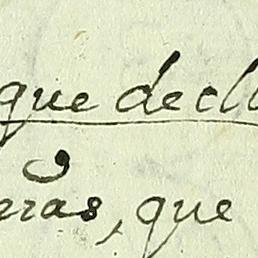 que decl
erãs, que